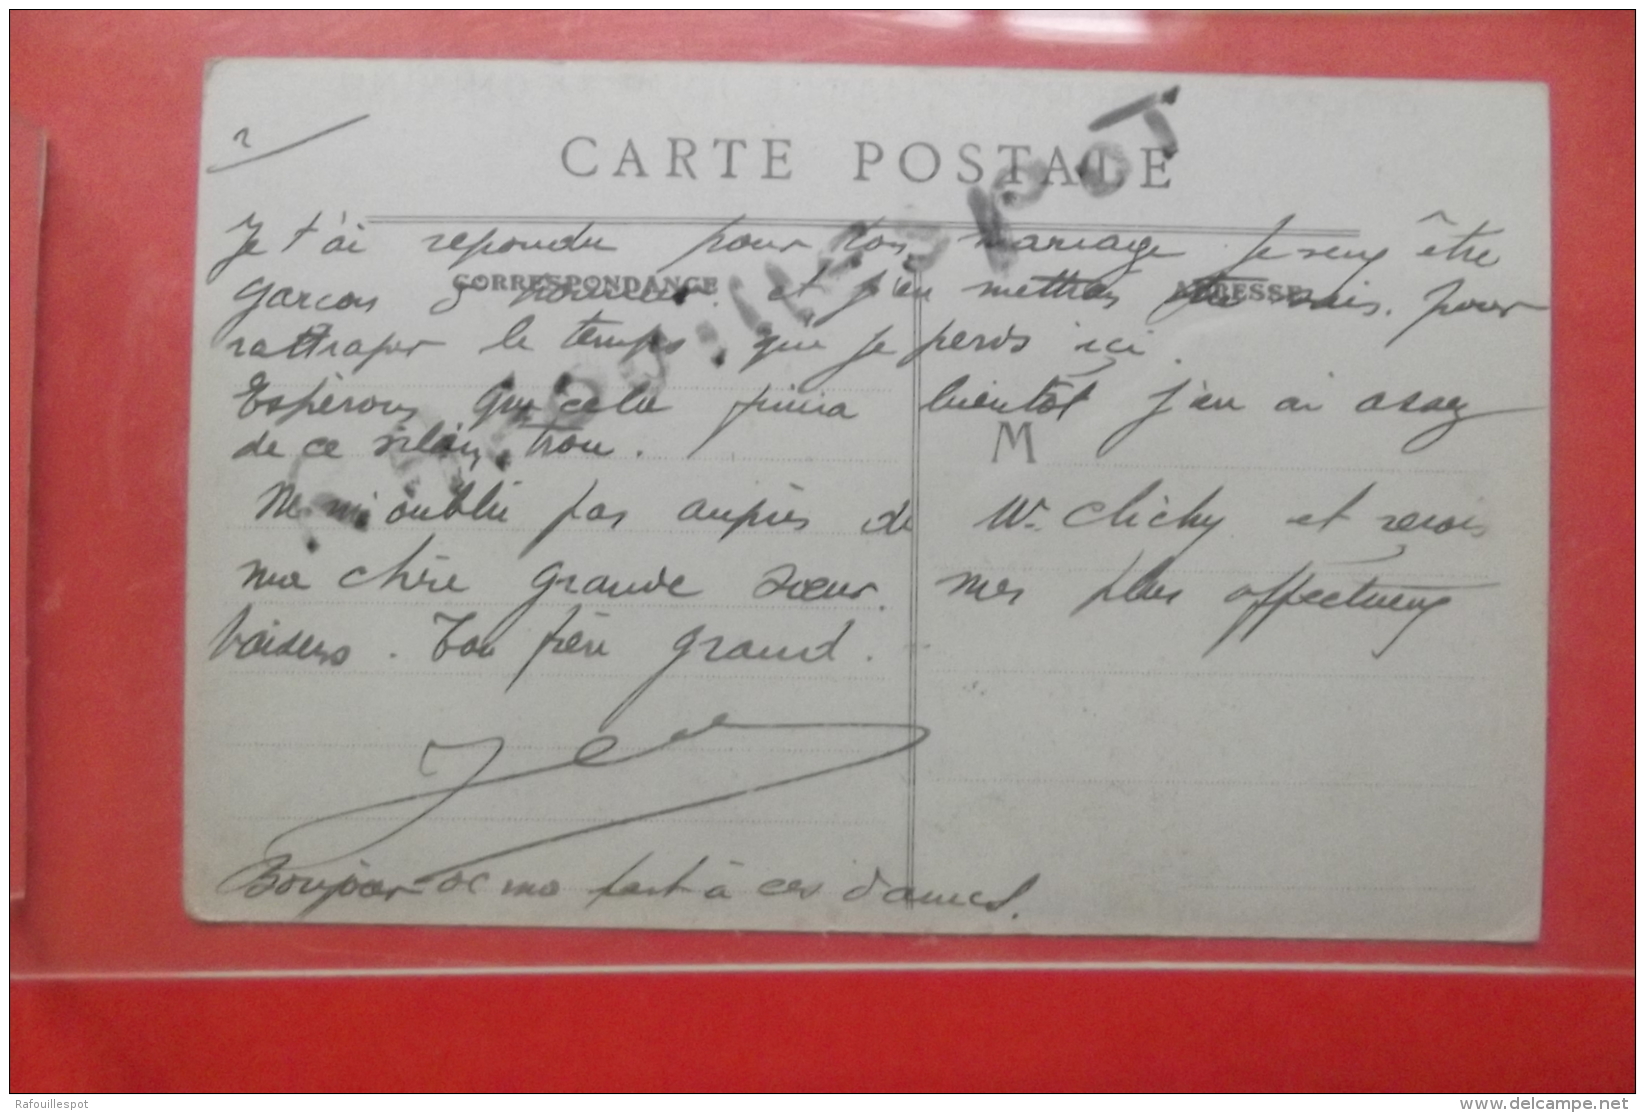 2
CARTE POSTALE
Je t'ai repondu pour ton mariage je veux être
CORRESPONDANCE
ADRESSE
garçon d'honneur. et j'en mettrai pour
rattraper le temps que je perds ici.
Espérons que cela finira bientôt j'en ai assez
de ce vilain trou.
M
Ne m'oublie pas auprès de Mr Clichy et reçois
ma chère grande soeur. mes plus affectueux
baisers. Ton frère grand.
Bonjour de ma part à ces dames.
Rafouillespot
www.delcampe.net